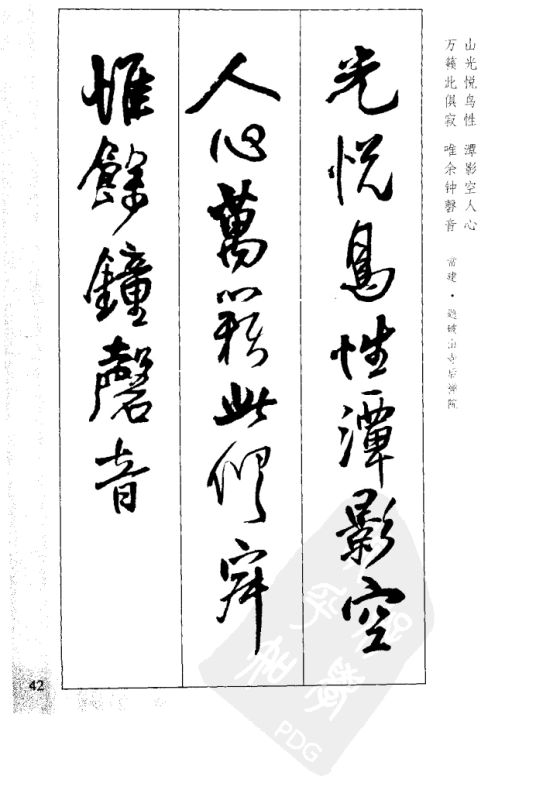 山光悦鸟性 潭影空人心
万籁此俱寂 唯余钟磬音 常建·题破山寺后禅院
光悦鳥性潭影空
人心萬籟此俱寂
惟餘鐘磬音
42
PDG